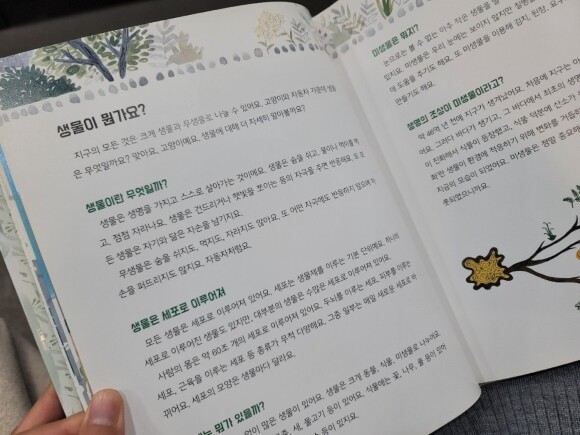 생물이 뭔가요?
지구의 모든 것은 크게 생물과 무생물로 나눌 수 있어요. 고양이와 자동차 가운데 생물
은 무엇일까요? 맞아요, 고양이예요. 생물에 대해 더 자세히 알아볼까요?
생물이란 무엇일까?
생물은 생명을 가지고 스스로 살아가는 것이에요. 생물은 숨을 쉬고, 물이나 먹이를 먹
고, 점점 자라나요. 생물은 건드리거나 햇빛을 쪼이는 등의 자극을 주면 반응해요. 또 모
든 생물은 자기와 닮은 자손을 남기지요.
무생물은 숨을 쉬지도, 먹지도, 자라지도 않아요. 또 어떤 자극에도 반응하지 않으며 자
손을 퍼뜨리지도 않지요. 자동차처럼요.
생물은 세포로 이루어져
모든 생물은 세포로 이루어져 있어요. 세포는 생물체를 이루는 기본 단위예요. 하나의
세포로 이루어진 생물도 있지만, 대부분의 생물은 수많은 세포로 이루어져 있어요.
사람의 몸은 약 60조 개의 세포로 이루어져 있어요. 두뇌를 이루는 세포, 피부를 이루는
세포, 근육을 이루는 세포 등 종류가 무척 다양해요. 그중 일부는 매일 새로운 세포로 바
뀌어요. 세포의 모양은 생물마다 달라요.
뭐가 있을까?
없이 많은 생물이 있어요. 생물은 크게 동물, 식물, 미생물로 나누어요
새, 물고기 등이 있어요. 식물에는 꽃, 나무, 풀 등이 있어
등이 있지요.
미생물은 뭐지?
눈으로는 볼 수 없는 아주 작은 생물을
있지요. 미생물은 우리 눈에는 보이지 않지만
에 도움을 주기도 해요. 또 미생물을 이용해 김치, 된장, 요구
만들기도 해요.
생명의 조상이 미생물이라고?
약 46억 년 전에 지구가 생겨났어요. 처음에 지구는
어요. 그러다 바다가 생기고, 그 바다에서 최초의 생명
이 진화해서 식물이 등장했고, 식물 덕분에 산소가
화한 생물이 환경에 적응하기 위해 변화를 거듭하
지금의 모습이 되었어요. 미생물은 정말 중요
롯되었으니까요.